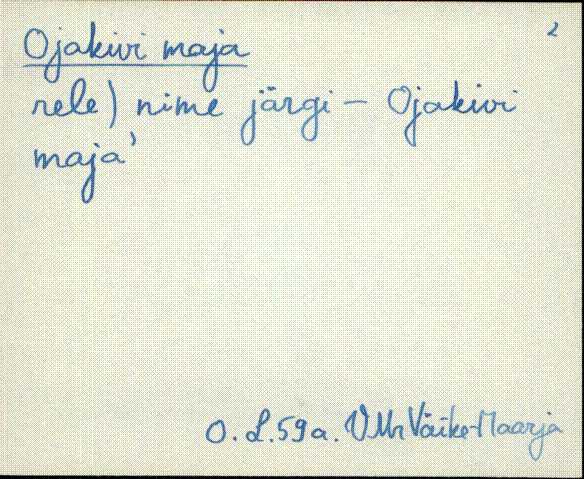 2
Ojakivi maja
rele) nime järgi – Ojakivi
maja’
O. L. 59a. VMr Väike-Maarja